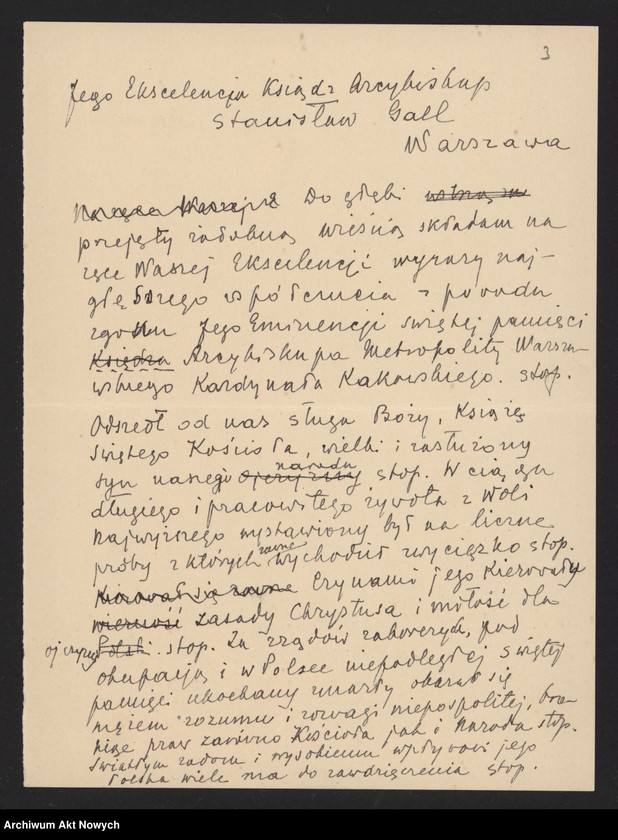 3
Jego Ekscelencja Ksiądz Arcybiskup
Stanisław Gall
Warszawa
Na ręce Waszej Do głębi
przejęty żałobną wieścią składam na
ręce Waszej Ekscelencji wyrazy naj-
głębszego współczucia z powodu
zgonu Jego Eminencji świętej pamięci
Księdza Arcybiskupa Metropolity Warsza-
wskiego Kardynała Kakowskiego. stop.
Odszedł od nas sługa Boży, Książę
Świętego Kościoła, wielki i zasłużony
narodu
syn naszego ojczyzny stop. W ciągu
długiego i pracowitego żywota z Woli
Najwyższego wystawiony był na liczne
zawsze
próby z których wychodził zwycięzko stop.
Kierował się zawsze Czynami jego kierowały
wierność zasady Chrystusa i miłość dla
ojczyzny Polski. stop. Za rządów zaborczych, pod
okupacją i w Polsce niepodległej świętej
pamięci ukochany zmarły okazał się
mężem rozumu i rozwagi niepospolitej, bro-
niąc praw zarówno Kościoła jak i Narodu stop.
Światłym radom i wysokiemu wpływowi jego
Polska wiele ma do zawdzięczenia stop.
Archiwum Akt Nowych